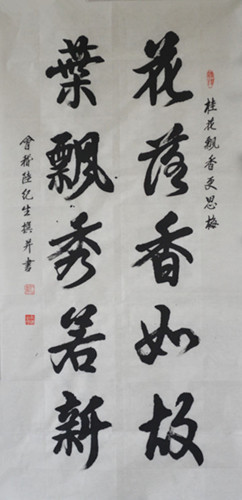 桂花飘香更思梅
花落香如故
葉飄秀若新
會稽陸紀生撰并書